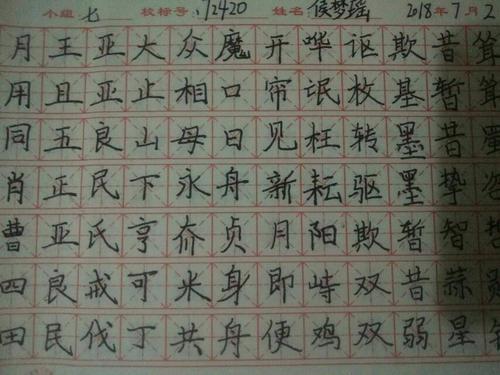 小组 七 校标号 72420 姓名 侯梦瑶 2018年7月2
月王亚大众魔开哗讴欺昔
用且亚止相口帘氓枚基暂
同五良山母日见枉转墨昔
肖正民下永舟新耘驱墨挚
曹亚氏亨夼贞月阳欺暂智
四良戒可米身即峙双昔蒜
田民伐丁共舟便鸡双弱星